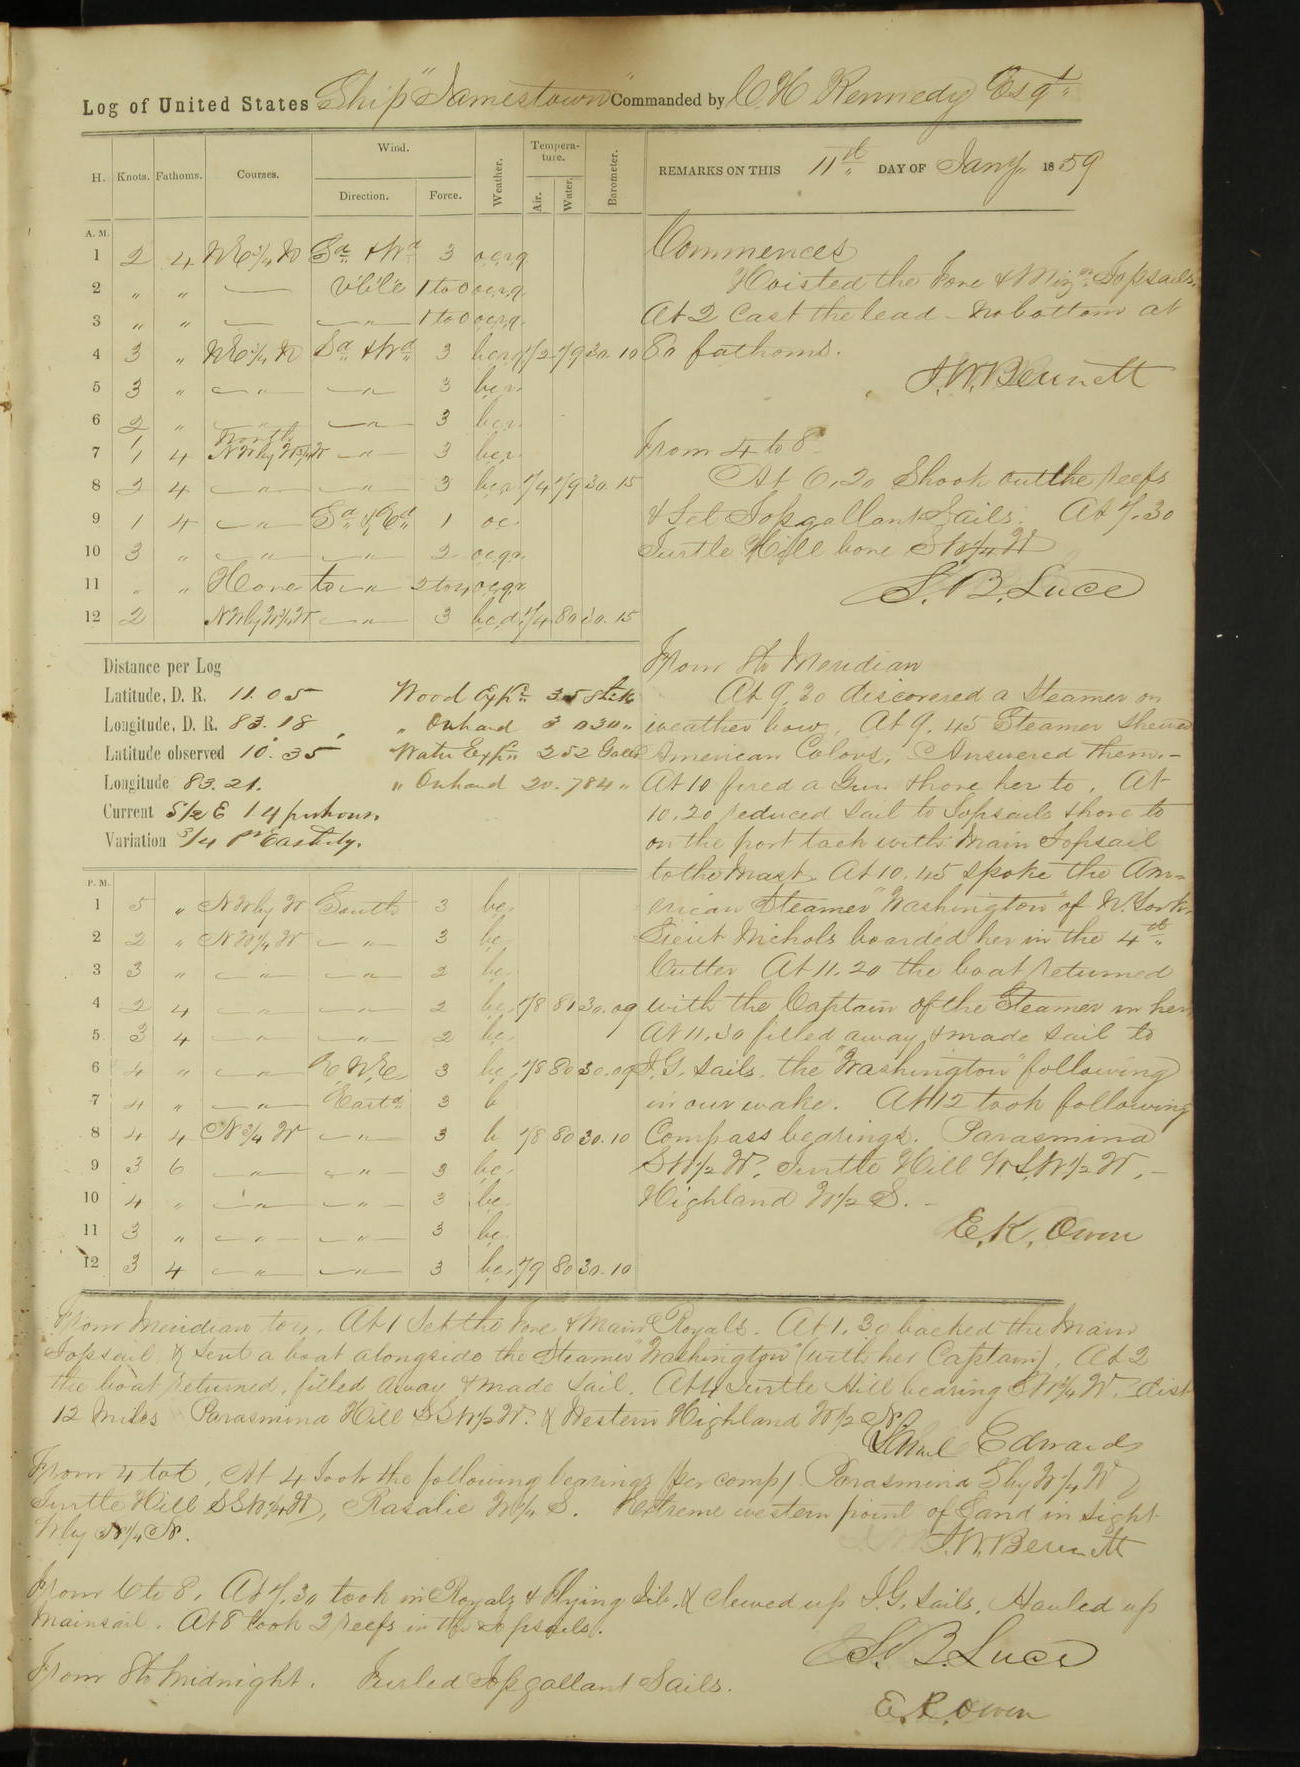 Log of United States Ship "Jamestown" Commanded by C. H. Kennedy Esqr.
H. Knots. Fathoms. Courses. Wind. Direction. Force. Weather. Tempera-ture. Air. Water. Barometer.
REMARKS ON THIS 11th DAY OF Jany. 1859
A. M.
1 2 4 NE 3/4 N Sd & Wd 3 o.c.r.q
2 " " — V'b'l'e 1 to 0 o.c.r.q.
3 " " — — " — 1 to 0 o.c.r.q.
4 3 " NE 3/4 N Sd & Wd 3 b.c.r.q 72 79 30.10
5 3 " — " — — " — 3 b.c.r.
6 2 " — " — — " — 3 b.c.r.
North
7 1 4 NW by W 3/4 W — " — 3 b.c.r.
8 2 4 — " — — " — 3 b.c.r. 74 79 30.15
9 1 4 — " — Sd & Ed 1 o.c.
10 3 " — " — — " — 2 o.c.q.r.
11 " " Hove to — " — 2 to 4 o.c.q.r
12 2 NW by W 3/4 W — " — 3 b.c.d. 74 80 30.15
Commences
Hoisted the Fore & Mizn. Topsails.
At 2 Cast the lead - no bottom at
80 fathoms.
J. W. Bennett
From 4 to 8
At 6.20 Shook out the reefs
& Set Topgallant Sails. At 7.30
Turtle Hill bore SW 1/4 W
S. B. Luce
Distance per Log
Latitude, D. R. 11.05 Wood Expd. 35 Sticks
Longitude, D. R. 83.18 " Onhand
Latitude observed 10.35 Water Expn. 252 Galls
Longitude 83.21. " Onhand 20.784 "
Current S 1/2 E 1.4 per hour.
Variation 3/4 Pt. Eastrly.
From 8 to Meridian
At 9.30 discovered a Steamer on
weather bow. At 9.45 Steamer shewed
American Colors. Answered them.-
At 10 fired a Gun & hove her to. At
10.20 reduced sail to Topsails & hove to
on the port tack with Main Topsail
to the Mast. At 10.45 spoke the Am-
erican Steamer "Washington" of N. York.
Lieut Nichols boarded her in the 4th
Cutter At 11.20 the boat returned
with the Captain of the Steamer in her.
At 11.30 filled away & made sail to
T. G. sails. the "Washington" following
in our wake. At 12 took following
Compass bearings. Parasmina
SW 1/2 W. Turtle Hill WSW 1/2 W. -
Highland W 1/2 S. -
E. K. Owen
P. M.
1 5 " NW by W South 3 b.c.
2 2 " NW 1/4 W — " — 3 b.c.
3 3 " — " — — " — 2 b.c.
4 2 4 — " — — " — 2 b.c. 78 81 30.09
5 3 4 — " — — " — 2 b.c.
6 4 " — " — ENE 3 b.c. 78 80 30.09
7 4 " — " — Eastd. 3 b
8 4 4 N 3/4 W — " — 3 b 78 80 30.10
9 3 6 — " — — " — 3 b.c.
10 4 " — " — — " — 3 b.c.
11 3 " — " — — " — 3 b.c.
12 3 4 — " — — " — 3 b.c. 79 80 30.10
From Meridian to 4. At 1 Set the Fore & Main Royals. At 1.30 backed the Main
Topsail & sent a boat alongside the Steamer "Washington" (with her Captain). At 2
the boat returned, filled away & made sail. At 4 Turtle Hill bearing SW 3/4 W. dist
12 Miles Parasmina Hill SSW 1/2 W. & Western Highland W 1/2 N.
Saml Edwards
From 4 to 6, At 4 Took the following bearings (per comp) Parasmina S by W 1/4 W
Turtle Hill SSW 3/4 W, Rasalie W 1/4 S. Extreme western point of Land in sight
W by N 1/4 N. J. W. Bennett
From 6 to 8, At 7.30 took in Royals & Flying Jib. & clewed up T. G. sails. Hauled up
mainsail. At 8 took 2 reefs in the Topsails.
S. B. Luce
From 8 to Midnight. Furled Topgallant Sails.
E. K. Owen